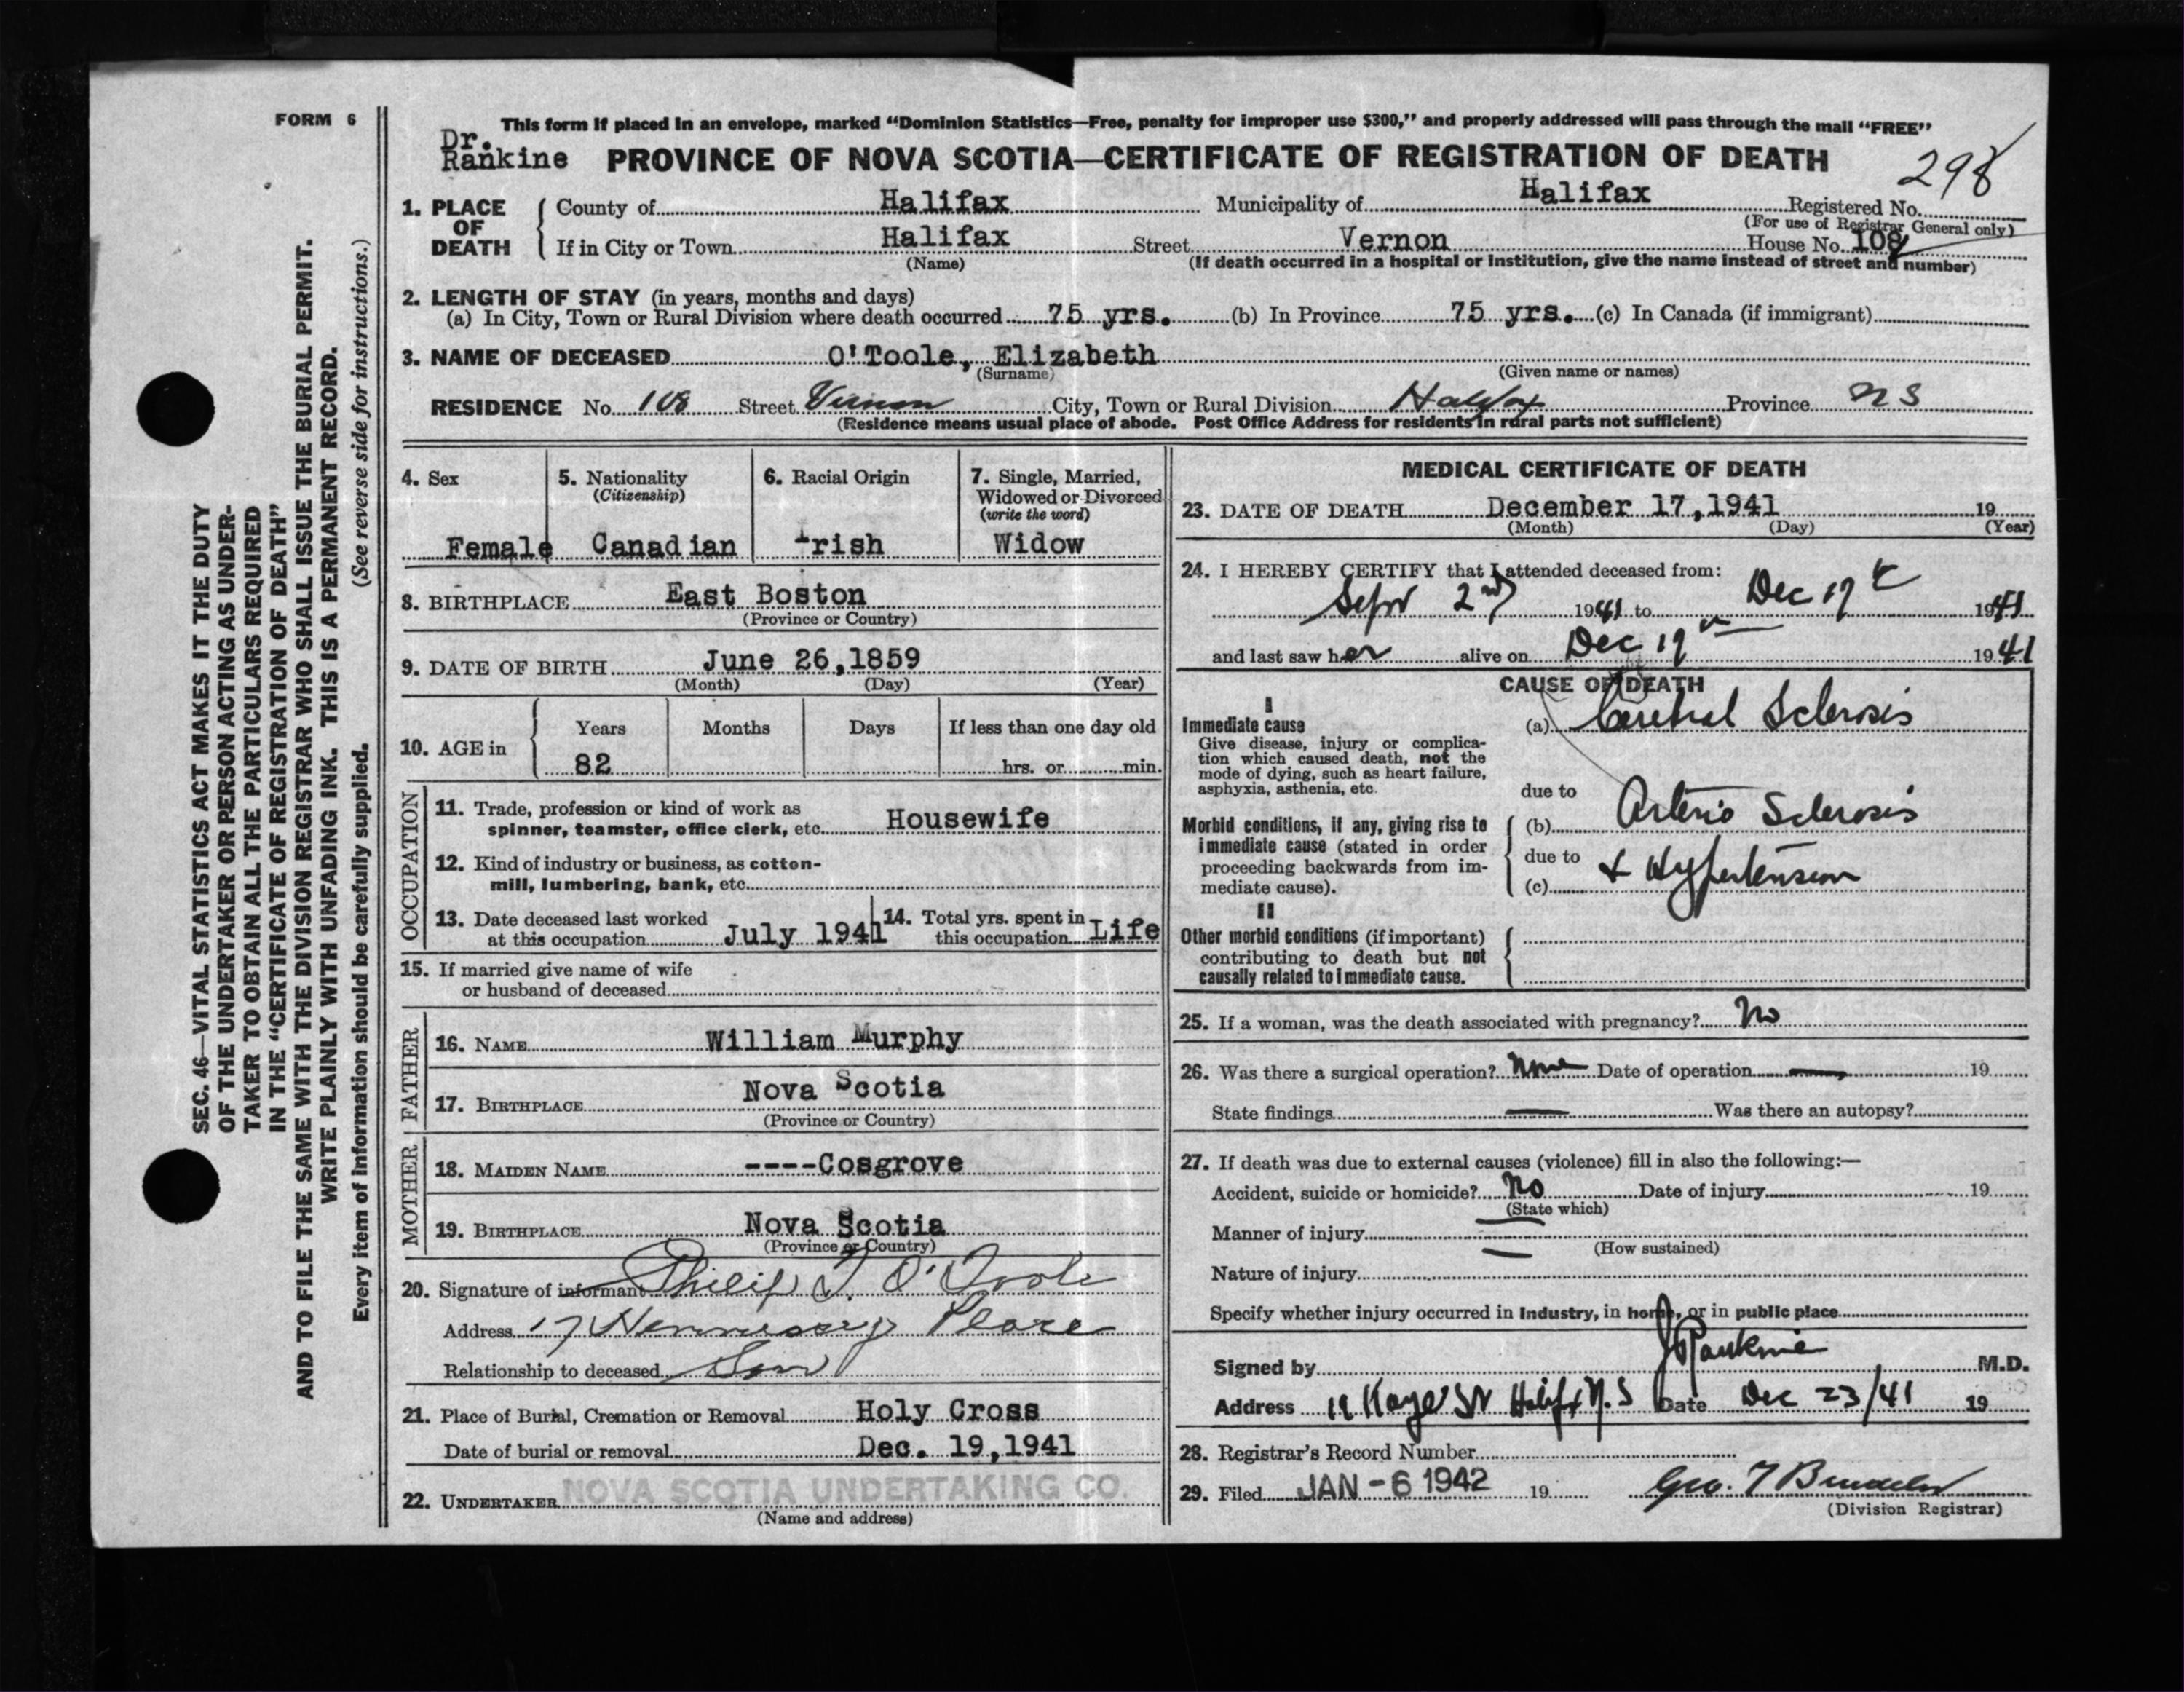 FORM 6
This form if placed in an envelope, marked “Dominion Statistics—Free, penalty for improper use $300,” and properly addressed will pass through the mail “FREE”
Dr.
Rankine PROVINCE OF NOVA SCOTIA—CERTIFICATE OF REGISTRATION OF DEATH
298
1. PLACE OF DEATH County of Halifax Municipality of Halifax Registered No.
(For use of Registrar General only)
If in City or Town Halifax Street Vernon House No. 108
(Name) (If death occurred in a hospital or institution, give the name instead of street and number)
2. LENGTH OF STAY (in years, months and days)
(a) In City, Town or Rural Division where death occurred 75 yrs. (b) In Province 75 yrs. (c) In Canada (if immigrant)
3. NAME OF DECEASED O'Toole, Elizabeth
(Surname) (Given name or names)
RESIDENCE No. 108 Street Vernon City, Town or Rural Division Halifax Province NS
(Residence means usual place of abode. Post Office Address for residents in rural parts not sufficient)
4. Sex
Female
5. Nationality
(Citizenship)
Canadian
6. Racial Origin
Irish
7. Single, Married,
Widowed or Divorced
(write the word)
Widow
8. BIRTHPLACE East Boston
(Province or Country)
9. DATE OF BIRTH June 26,1859
(Month) (Day) (Year)
10. AGE in Years Months Days If less than one day old
82 hrs. or min.
OCCUPATION
11. Trade, profession or kind of work as
spinner, teamster, office clerk, etc. Housewife
12. Kind of industry or business, as cotton-
mill, lumbering, bank, etc.
13. Date deceased last worked
at this occupation July 1941
14. Total yrs. spent in
this occupation Life
15. If married give name of wife
or husband of deceased
FATHER
16. NAME William Murphy
17. BIRTHPLACE Nova Scotia
(Province or Country)
MOTHER
18. MAIDEN NAME ----Cosgrove
19. BIRTHPLACE Nova Scotia
(Province or Country)
20. Signature of informant Philip T. O'Toole
Address 17 Hennessey Place
Relationship to deceased Son
21. Place of Burial, Cremation or Removal Holy Cross
Date of burial or removal Dec. 19,1941
22. UNDERTAKER NOVA SCOTIA UNDERTAKING CO.
(Name and address)
MEDICAL CERTIFICATE OF DEATH
23. DATE OF DEATH December 17,1941 19
(Month) (Day) (Year)
24. I HEREBY CERTIFY that I attended deceased from:
Sept 2nd 1941 to Dec 17th 1941
and last saw her alive on Dec 17th 1941
CAUSE OF DEATH
I
Immediate cause
Give disease, injury or complica-
tion which caused death, not the
mode of dying, such as heart failure,
asphyxia, asthenia, etc.
(a) Cerebral Sclerosis
due to
Morbid conditions, if any, giving rise to
immediate cause (stated in order
proceeding backwards from im-
mediate cause).
(b) Arterio Sclerosis
due to
(c) & Hypertension
II
Other morbid conditions (if important)
contributing to death but not
causally related to immediate cause.
25. If a woman, was the death associated with pregnancy? No
26. Was there a surgical operation? None Date of operation — 19
State findings — Was there an autopsy?
27. If death was due to external causes (violence) fill in also the following:—
Accident, suicide or homicide? No Date of injury 19
(State which)
Manner of injury —
(How sustained)
Nature of injury —
Specify whether injury occurred in industry, in home, or in public place
Signed by J Rankine M.D.
Address 19 Kaye St Halifx N.S Date Dec 23/41 19
28. Registrar's Record Number
29. Filed JAN -6 1942 19
(Division Registrar)
SEC. 46—VITAL STATISTICS ACT MAKES IT THE DUTY
OF THE UNDERTAKER OR PERSON ACTING AS UNDER-
TAKER TO OBTAIN ALL THE PARTICULARS REQUIRED
IN THE “CERTIFICATE OF REGISTRATION OF DEATH”
AND TO FILE THE SAME WITH THE DIVISION REGISTRAR WHO SHALL ISSUE THE BURIAL PERMIT.
WRITE PLAINLY WITH UNFADING INK. THIS IS A PERMANENT RECORD.
Every item of information should be carefully supplied. (See reverse side for instructions.)